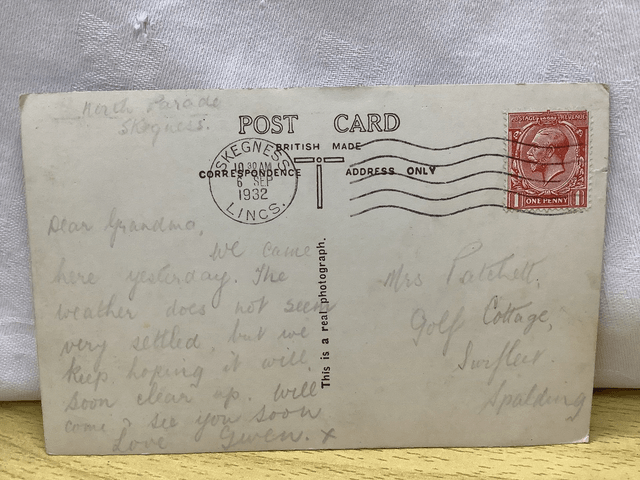 North Parade
Skegness.
POST CARD
BRITISH MADE
CORRESPONDENCE
ADDRESS ONLY
SKEGNESS
10 30 AM
6 SEP
1932
LINCS.
POSTAGE REVENUE
1 ONE PENNY 1
Dear Grandma,
We came
here yesterday. The
weather does not seem
very settled, but we
keep hoping it will
soon clear up. Will
come & see you soon
Love Gwen. x
This is a real photograph.
Mrs Patchett,
Golf Cottage,
Surfleet.
Spalding